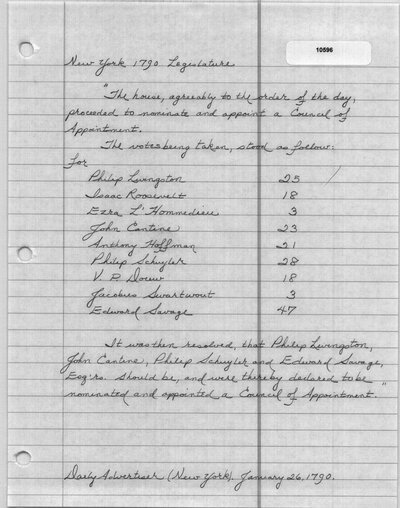 10596
New York 1790 Legislature
"The house, agreeably to the order of the day,
proceeded to nominate and appoint a Council of
Appointment.
The votes being taken, stood as follow:
For
Philip Livingston 25
Isaac Roosevelt 18
Ezra L'Hommedieu 3
John Cantine 23
Anthony Hoffman 21
Philip Schuyler 28
V. P. Douw 18
Jacobus Swartwout 3
Edward Savage 47
It was then resolved, that Philip Livingston,
John Cantine, Philip Schuyler and Edward Savage,
Esq'rs. should be, and were thereby declared to be
nominated and appointed a Council of Appointment."
Daily Advertiser (New York). January 26, 1790.